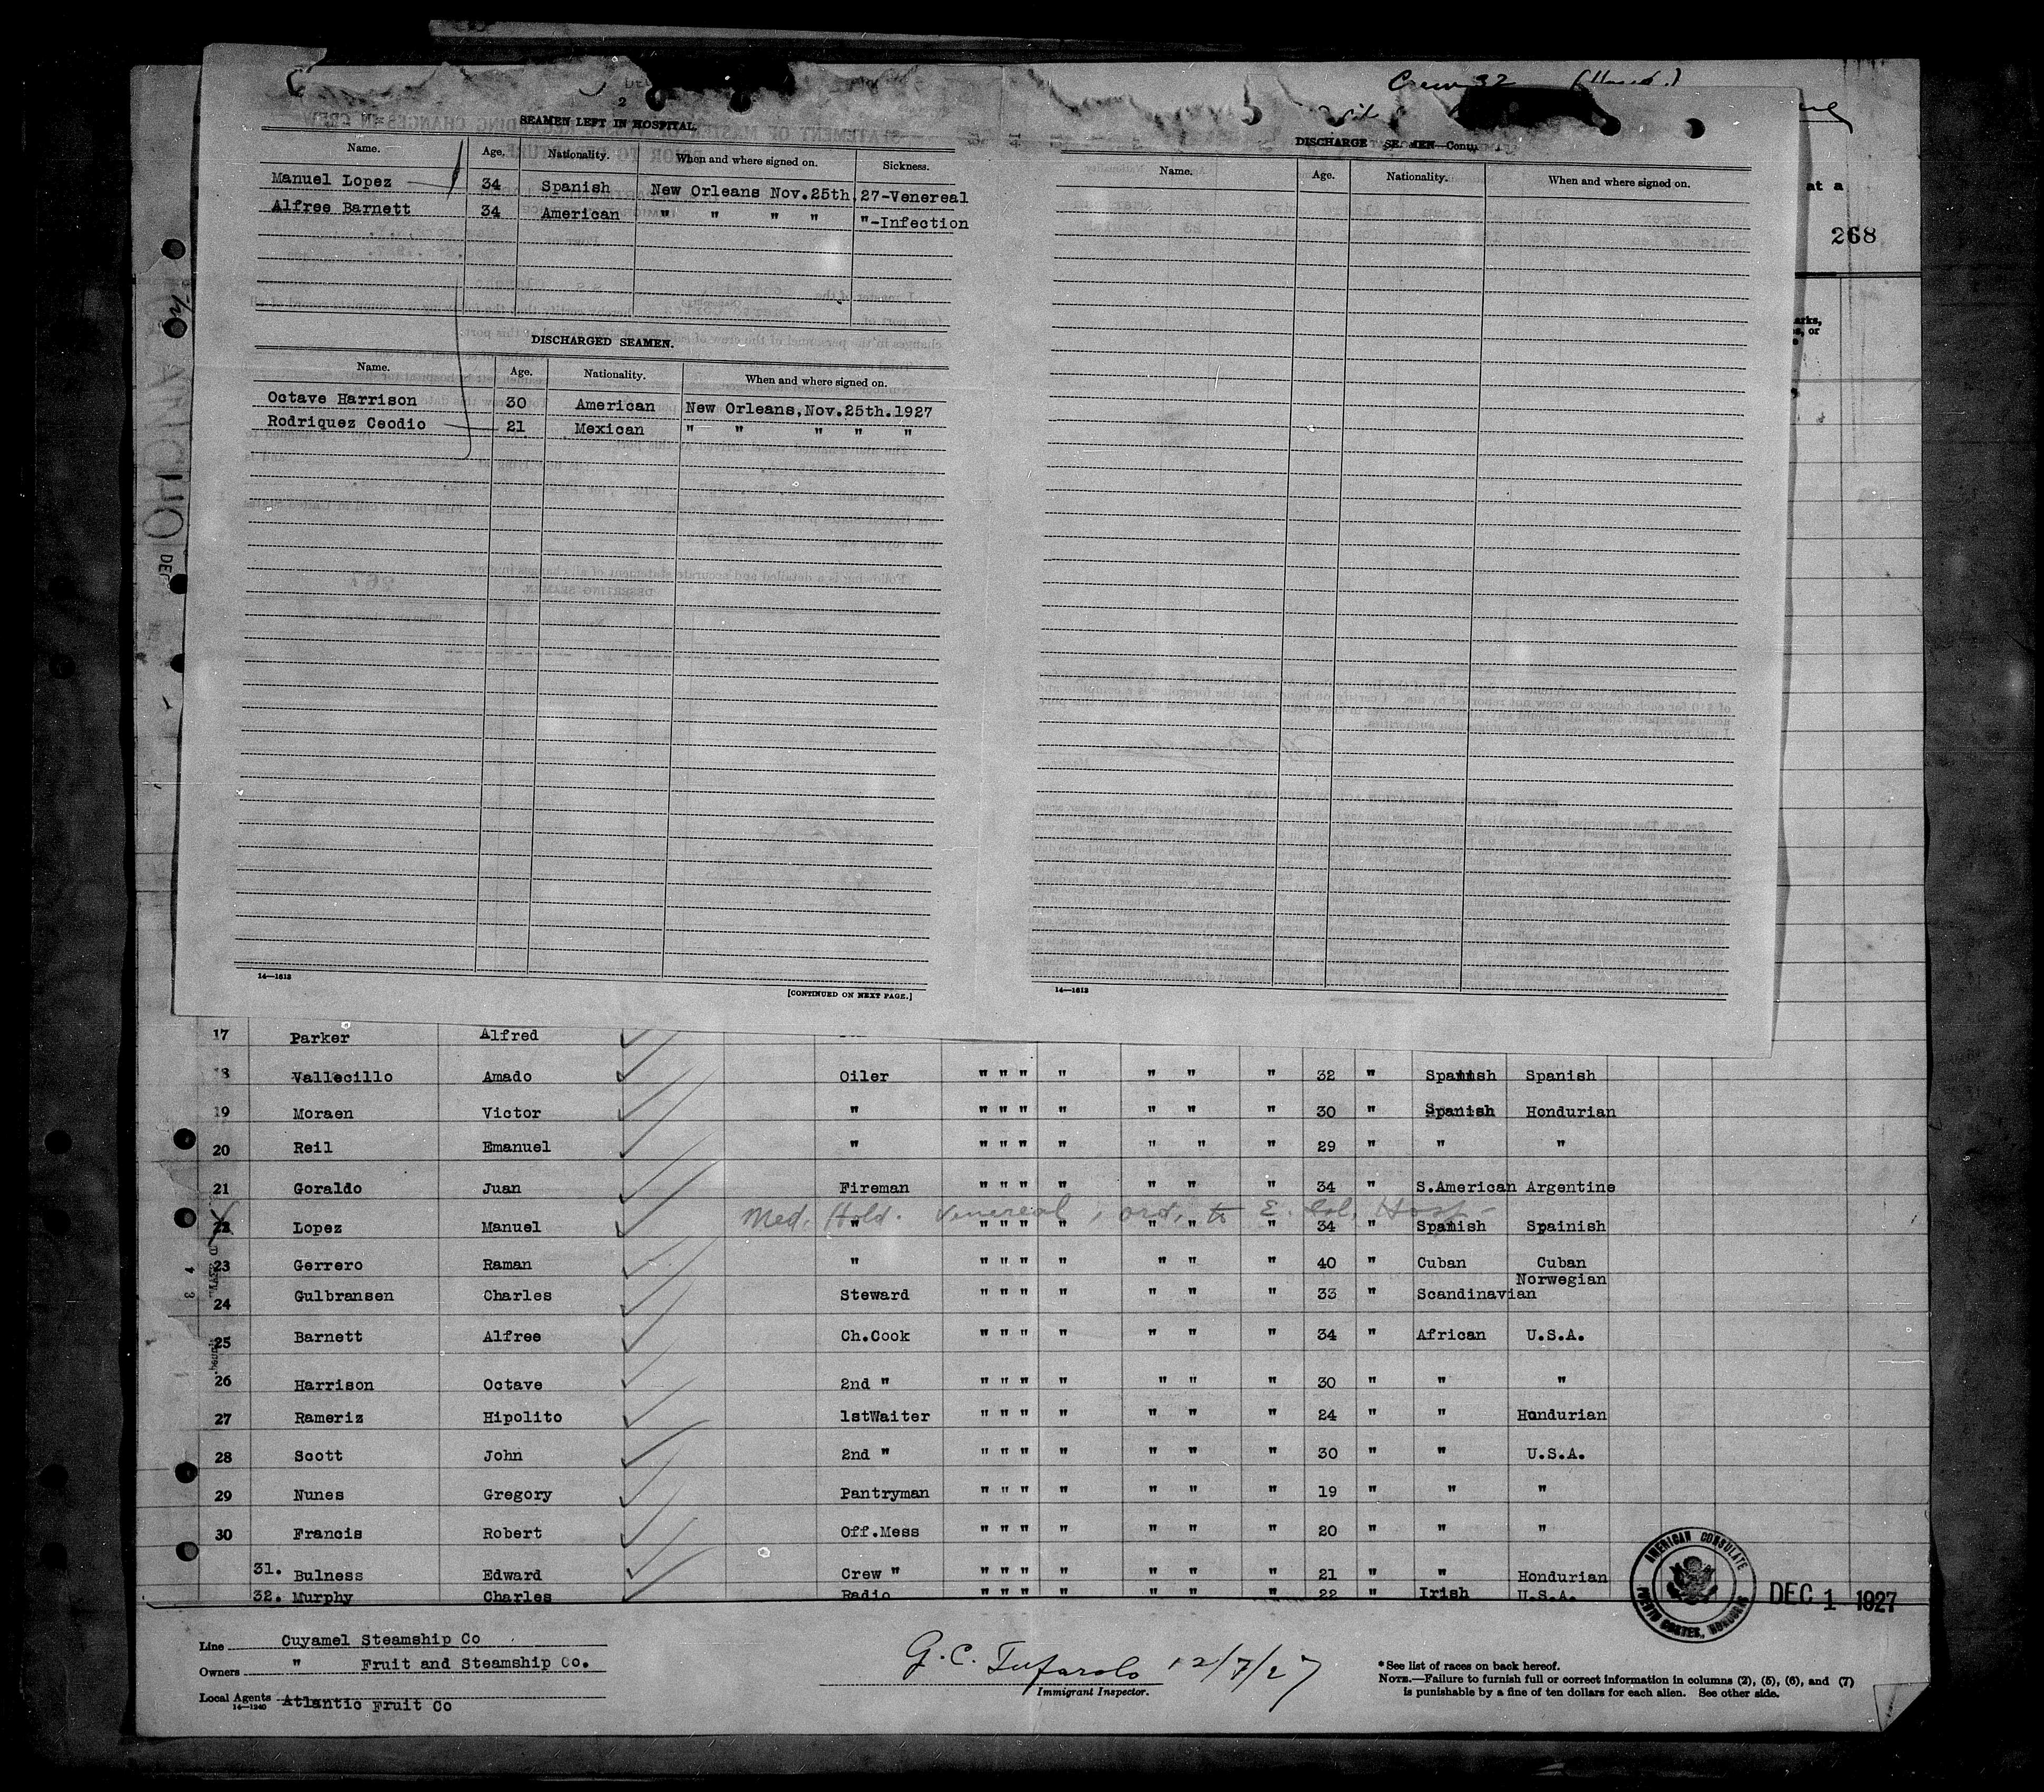 Crew 32
268
at a
2
SEAMEN LEFT IN HOSPITAL.
Name. Age. Nationality. When and where signed on. Sickness.
Manuel Lopez 34 Spanish New Orleans Nov.25th.27-Venereal
Alfree Barnett 34 American " " " " "-Infection
DISCHARGED SEAMEN.
Name. Age. Nationality. When and where signed on.
Octave Harrison 30 American New Orleans,Nov.25th.1927
Rodriquez Ceodio 21 Mexican " " " " "
14—1613
[CONTINUED ON NEXT PAGE.]
DISCHARGE SEAMEN—Contd.
Name. Age. Nationality. When and where signed on.
14—1613
17 Parker Alfred
18 Vallecillo Amado Oiler " " " " " " " 32 " Spanish Spanish
19 Moraen Victor " " " " " " " " 30 " Spanish Hondurian
20 Reil Emanuel " " " " " " " " 29 " " "
21 Goraldo Juan Fireman " " " " " " " 34 " S.American Argentine
Med. Hold. Venereal, ord. to E. Hosp-
22 Lopez Manuel " " " " " " " " 34 " Spanish Spainish
23 Gerrero Raman " " " " " " " " 40 " Cuban Cuban
24 Gulbransen Charles Steward " " " " " " " 33 " Scandinavian Norwegian
25 Barnett Alfree Ch.Cook " " " " " " " 34 " African U.S.A.
26 Harrison Octave 2nd " " " " " " " " 30 " " "
27 Rameriz Hipolito 1stWaiter " " " " " " " 24 " " Hondurian
28 Scott John 2nd " " " " " " " " 30 " " U.S.A.
29 Nunes Gregory Pantryman " " " " " " " 19 " " "
30 Francis Robert Off.Mess " " " " " " " 20 " " "
31. Bulness Edward Crew " " " " " " " " 21 " " Hondurian
32. Murphy Charles Radio " " " " " " " 22 " Irish U.S.A.
AMERICAN CONSULATE
PUERTO CORTES, HONDURAS
DEC 1 1927
Line Cuyamel Steamship Co
Owners " Fruit and Steamship Co.
Local Agents Atlantic Fruit Co
14—1240
G.C. Tufarolo 12/7/27
Immigrant Inspector.
*See list of races on back hereof.
NOTE.—Failure to furnish full or correct information in columns (2), (5), (6), and (7)
is punishable by a fine of ten dollars for each alien. See other side.